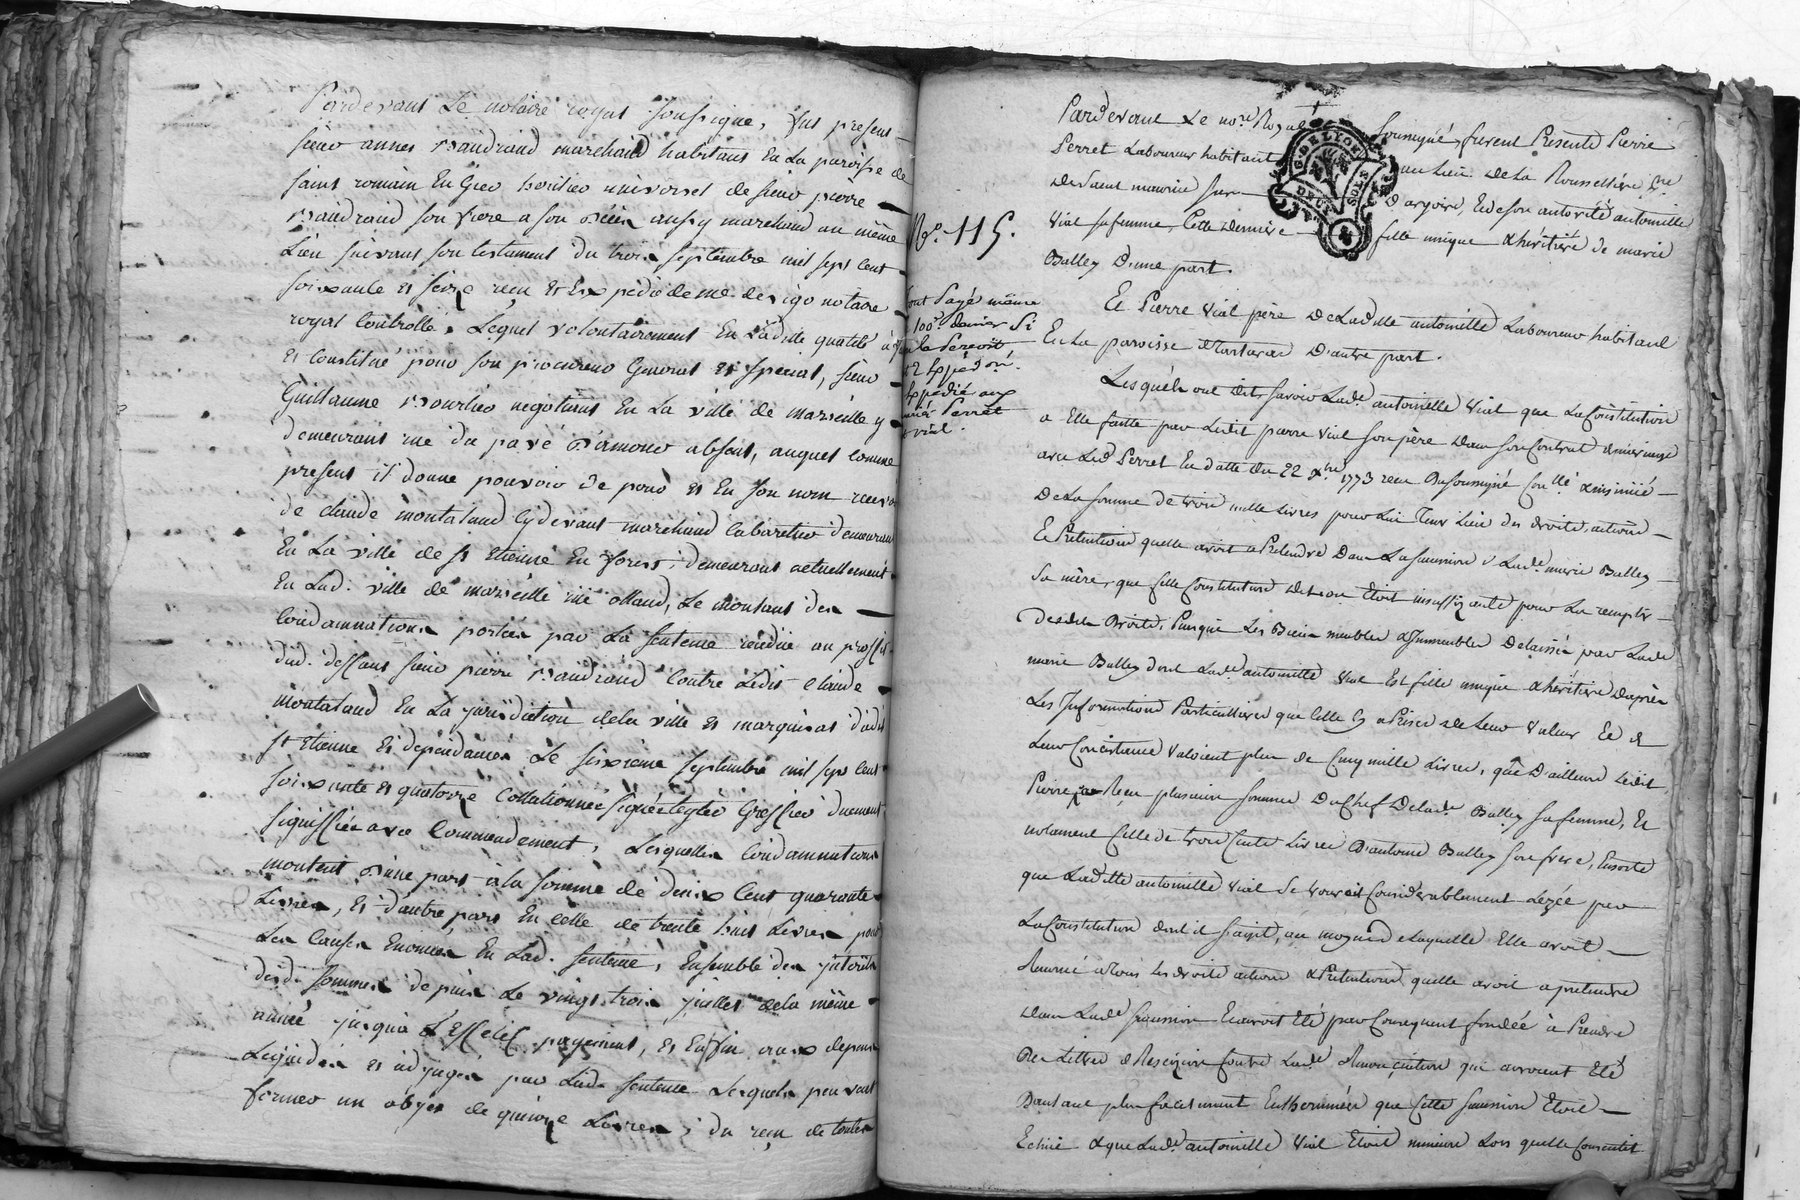 Pardevant Le notaire royal soussigné, fut present
sieur annes Baudrand marchand habitant En La paroisse de
saint romain En Gier heritier universel de sieur pierre
Baudrand son frere a son déces aussy marchand au même
Lieu suivant son testament du trois septembre mil sept cent
soixante et seize recu et Expedié de me notaire
royal Controllé, Lequel volontairement En Ladite qualité à
et constitué pour son procureur General et special, sieur
Guillaume Bourlier negotiant En La ville de marseille y
demeurant rue du pavé D'amour absent, auquel comme
present il donne pouvoir de pour et En son nom recevoir
de claude montaland cydevant marchand cabaretier demeurant
En La ville de st Etienne En forest, demeurant actuellement
En Lad. ville de marseille rue , Le montant des
Condamnations portées par La sentence rendue au proffit
dud. deffunt sieur pierre Baudrand Contre Ledit claude
montaland En La jurisdiction dela ville et marquisat dudit
st Etienne Et dependances Le sixieme septembre mil sept cent
soixante et quatorze Collationnée signée Greffier duement
signiffiée avec Commandement, Lesquelles Condamnations
montent D'une part à la somme de deux Cent quarante
Livres, Et d'autre part En celle de trente huit Livres pour
Les Causes Enoncées En Lad. sentence, Ensemble des jnterêts
desd. sommes depuis Le vingt trois juillet dela même
année jusqu'à L'Effectif payement, et Enfin aux depens
Liquidés et adjugés par Lad. sentence Lesquels peuvent
former un objet de quinze Livres, du reçu de toutes
Pardevant Le nore. Royal soussigné, furent Presents Pierre
Perret Laboureur habitant au Lieu de La Rousselliere
de saint maurice sur D'argoire, Et de son autorité antoinette
Vial sa femme, Cette Derniere fille unique & héritiere de marie
Balley D'une part.
No. 115.
Et Pierre Vial père De Ladite antoinette Laboureur habitant
En La paroisse de tartaras D'autre part.
Lesquels ont dit, savoir Lade. antoinette Vial que La Constitution
a Elle faitte par Ledit pierre Vial son père dans son Contrat de mariage
avec Led. Perret En datte du 22 xbre 1773 recu Du soussigné Conllé & insinué
De La somme de trois mille livres pour Lui tenir Lieu des droits, actions
Et Prétentions quelle avoit a Prétendre Dans La succession de Lade. marie Balley
Sa mère, que cette Constitution étoit insuffizante pour La remplir
Desdits Droits, Puisque Les Biens meubles & Immeubles Délaissés par Lade
marie Balley dont Lade antoinette Vial Est fille unique & héritière D'après
Les Informations Particulieres que celle cy a Prises de Leur Valeur Et de
Leur Consistance Valoient plus de Cinq mille Livres, que D'ailleurs Ledit
Pierre a Reçu plusieurs sommes Du Chef De Lade. Balley sa femme, Et
notament Celle de trois Cents Livres D'antoine Balley son frere, Ensorte
que Ladite antoinette Vial Se trouvoit Considérablement Lézée par
La Constitution dont il s'agit, au moyen De Laquelle Elle avoit
Renoncé a tous Les droits actions & Prétentions quelle avoit a prétendre
Dans Lade succession Et auroit Eté par Conséquent fondée à Prendre
Des Lettres de Rescizion Contre Lade Renonciation qui auroient Eté
D'autant plus facilement Enthérinées que cette succession Etoit
Echüe & que Lade antoinette Vial Etoit mineure Lors quelle Consentit